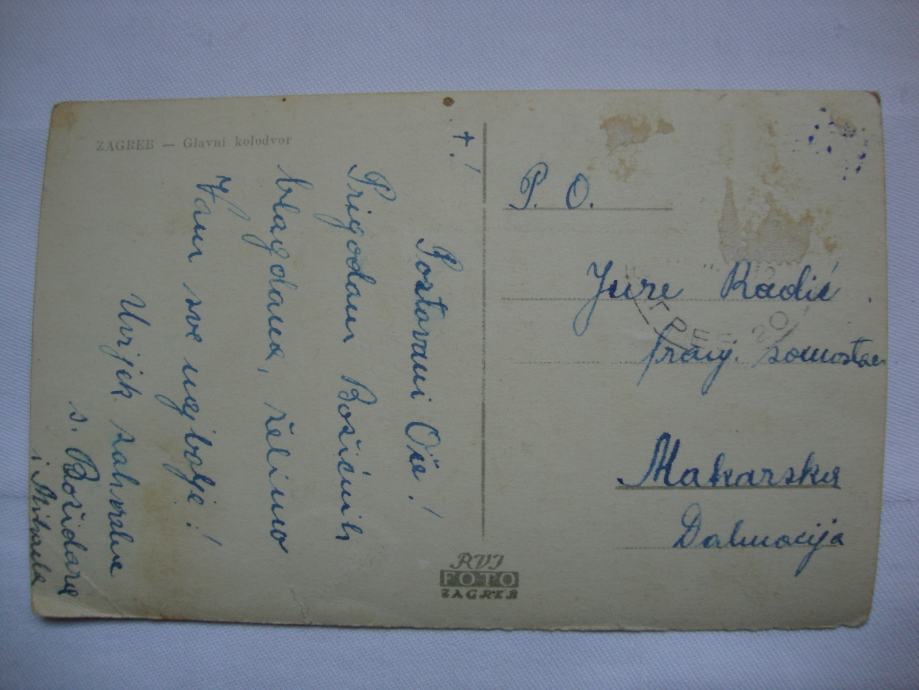 ZAGREB — Glavni kolodvor
+!
Poštovani Oče!
Prigodom Božićnih
blagdana, želimo
Vam sve najbolje!
Uvijek zahvalne
s. Božidara
i
P. O.
Jure Radić
franj. samostan
Makarska
Dalmacija
RVI
FOTO
ZAGREB